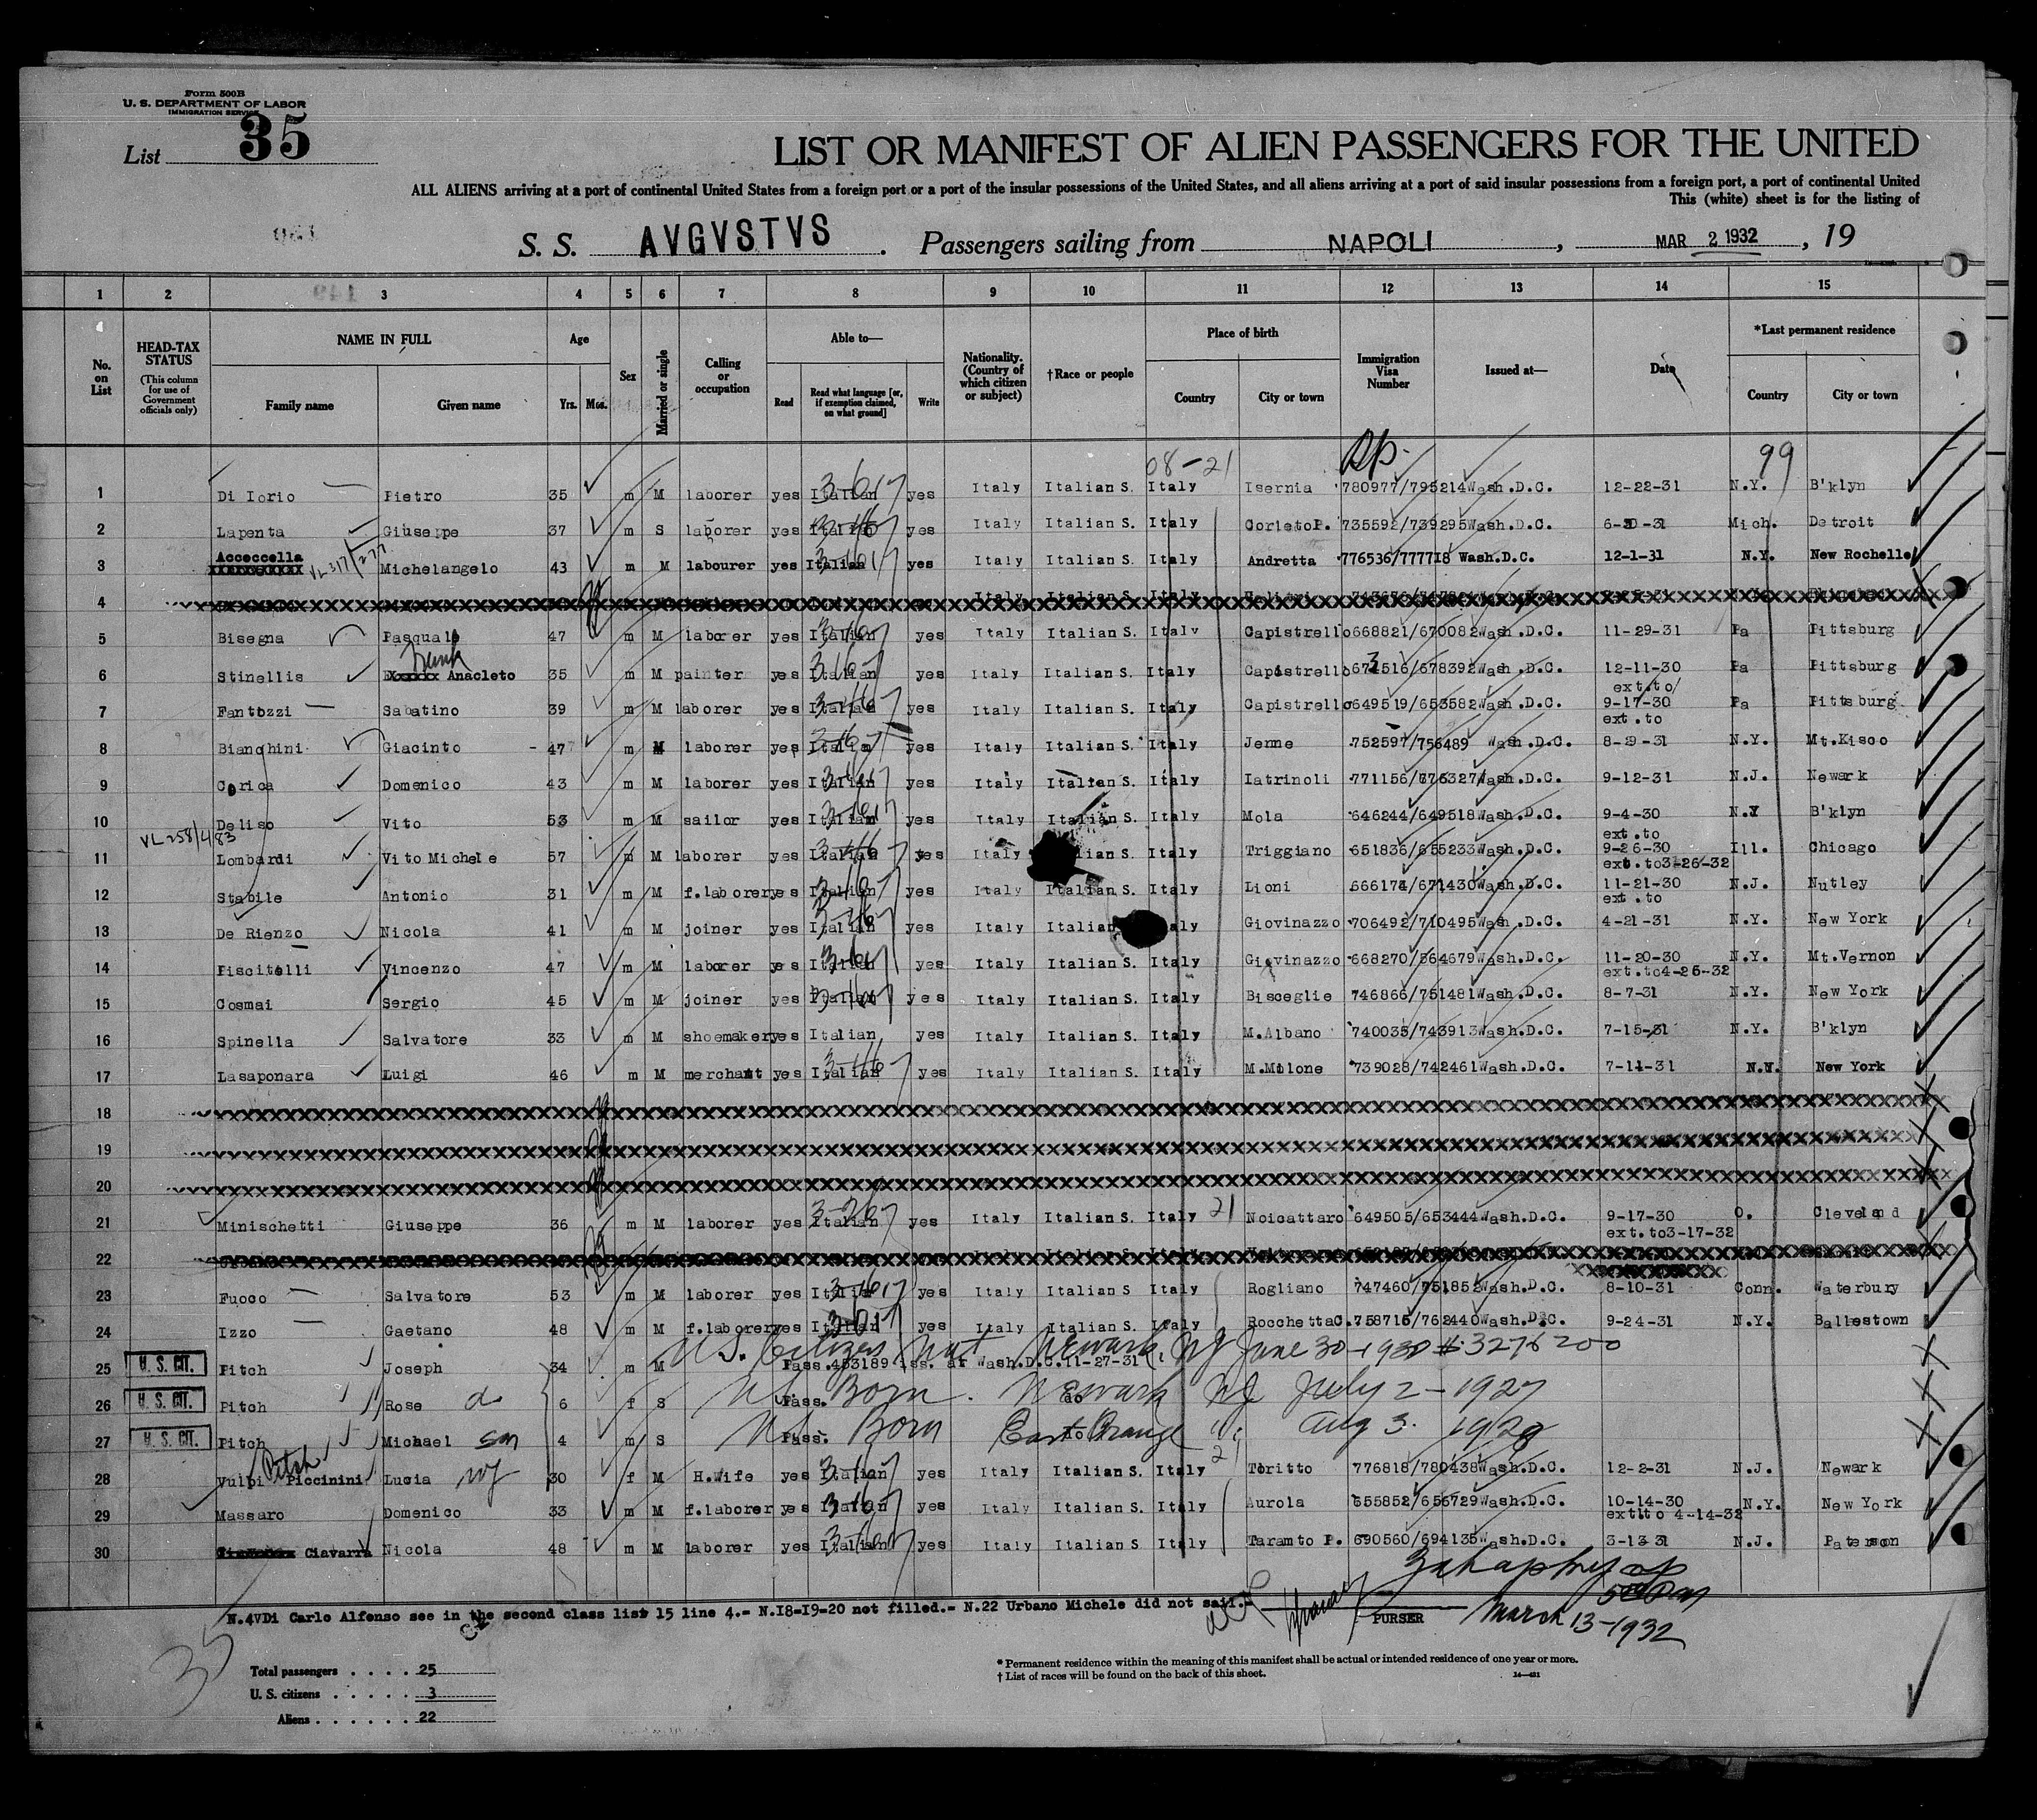 Form 500B
U. S. DEPARTMENT OF LABOR
IMMIGRATION SERVICE
List 35
LIST OR MANIFEST OF ALIEN PASSENGERS FOR THE UNITED
ALL ALIENS arriving at a port of continental United States from a foreign port or a port of the insular possessions of the United States, and all aliens arriving at a port of said insular possessions from a foreign port, a port of continental United
This (white) sheet is for the listing of
S. S. AVGVSTVS. Passengers sailing from NAPOLI, MAR 2 1932, 19
1 2 3 4 5 6 7 8 9 10 11 12 13 14 15
No. on List HEAD-TAX STATUS (This column for use of Government officials only) NAME IN FULL Family name Given name Age Yrs. Mos. Sex Married or single Calling or occupation Able to— Read Read what language [or, if exemption claimed, on what ground] Write Nationality. (Country of which citizen or subject) †Race or people Place of birth Country City or town Immigration Visa Number Issued at— Date *Last permanent residence Country City or town
08-21 99
1 Di Iorio Pietro 35 m M laborer yes Italian yes Italy Italian S. Italy Isernia 780977/795214 Wash.D.C. 12-22-31 N.Y. B'klyn
2 Lapenta Giuseppe 37 m S laborer yes Italian yes Italy Italian S. Italy CorletoP. 735592/739295 Wash.D.C. 31 Mich. Detroit
3 Acceccella Michelangelo 43 m M labourer yes Italian yes Italy Italian S. Italy Andretta 776536/777718 Wash.D.C. 12-1-31 N.Y. New Rochelle
4
5 Bisegna Pasquale 47 m M laborer yes Italian yes Italy Italian S. Italy Capistrello 668821/670082 Wash.D.C. 11-29-31 Pa Pittsburg
6 Stinellis Anacleto 35 m M painter yes Italian yes Italy Italian S. Italy Capistrello /678392 Wash.D.C. 12-11-30 ext.to Pa Pittsburg
7 Fantozzi Sabatino 39 m M laborer yes Italian yes Italy Italian S. Italy Capistrello 649519/653582 Wash.D.C. 9-17-30 ext.to Pa Pittsburg
8 Bianchini Giacinto - 47 m M laborer yes Italian yes Italy Italian S. Italy Jenne 752597/756489 Wash.D.C. 8-9-31 N.Y. Mt.Kisco
9 Corica Domenico 43 m M laborer yes Italian yes Italy Italian S. Italy Iatrinoli 771156/ Wash.D.C. 9-12-31 N.J. Newark
10 Deliso Vito 53 m M sailor yes Italian yes Italy Italian S. Italy Mola 646244/649518 Wash.D.C. 9-4-30 ext.to N.Y B'klyn
VL 258/483
11 Lombardi Vito Michele 57 m M laborer yes Italian yes Italy Italian S. Italy Triggiano 651836/655233 Wash.D.C. 9-26-30 ext.to3-26-32 Ill. Chicago
12 Stabile Antonio 31 m M f.laborer yes Italian yes Italy Italian S. Italy Lioni 666174/671430 Wash.D.C. 11-21-30 ext.to N.J. Nutley
13 De Rienzo Nicola 41 m M joiner yes Italian yes Italy Italian Italy Giovinazzo 706492/710495 Wash.D.C. 4-21-31 N.Y. New York
14 Piscitelli Vincenzo 47 m M laborer yes Italian yes Italy Italian S. Italy Giovinazzo 668270/564679 Wash.D.C. 11-20-30 ext.to4-25-32 N.Y. Mt.Vernon
15 Cosmai Sergio 45 m M joiner yes Italian yes Italy Italian S. Italy Bisceglie 746866/751481 Wash.D.C. 8-7-31 N.Y. New York
16 Spinella Salvatore 33 m M shoemaker yes Italian yes Italy Italian S. Italy M.Albano 740035/743913 Wash.D.C. 7-15-31 N.Y. B'klyn
17 Lasaponara Luigi 46 m M merchant yes Italian yes Italy Italian S. Italy M.Milone 739028/742461 Wash.D.C. 7-14-31 N.Y. New York
18
19
20
21 Minischetti Giuseppe 36 m M laborer yes Italian yes Italy Italian S. Italy 21 Noicattaro 649505/653444 Wash.D.C. 9-17-30 ext.to3-17-32 O. Cleveland
22
23 Fuoco Salvatore 53 m M laborer yes Italian yes Italy Italian S Italy Rogliano 747460/751852 Wash.D.C. 8-10-31 Conn. Waterbury
24 Izzo Gaetano 48 m M f.laborer yes Italian yes Italy Italian S. Italy RocchettaC. 758715/762440 Wash.D.C. 9-24-31 N.Y. Ballestown
25 U.S. CIT. Pitch Joseph 34 m M Pass.453189 iss. at Wash.D.C.11-27-31 U.S. Citizen Nat Newark, NJ June 30-1930 #3276200
26 U.S. CIT. Pitch Rose d 6 f S Pass. do US Born. Newark NJ July 2-1927
27 U.S. CIT. Pitch Michael son 4 m S Pass. do US Born East Orange NJ Aug 3. 1928
28 Vulpi Piccinini Pitch Lucia wf 30 f M H.Wife yes Italian yes Italy Italian S. Italy Toritto 776818/780438 Wash.D.C. 12-2-31 N.J. Newark
29 Massaro Domenico 33 m M f.laborer yes Italian yes Italy Italian S. Italy Aurola 655852/656729 Wash.D.C. 10-14-30 extto 4-14-32 N.Y. New York
30 Ciavarra Nicola 48 m M laborer yes Italian yes Italy Italian S. Italy Taranto P. 690560/694135 Wash.D.C. 3-13-31 N.J. Paterson
N.4VDi Carlo Alfenso see in the second class list 15 line 4.- N.18-19-20 not filled.- N.22 Urbano Michele did not sail.-
PURSER March 13-1932
35
Total passengers . . . . 25
U. S. citizens . . . . . 3
Aliens . . . . . . 22
* Permanent residence within the meaning of this manifest shall be actual or intended residence of one year or more.
† List of races will be found on the back of this sheet.